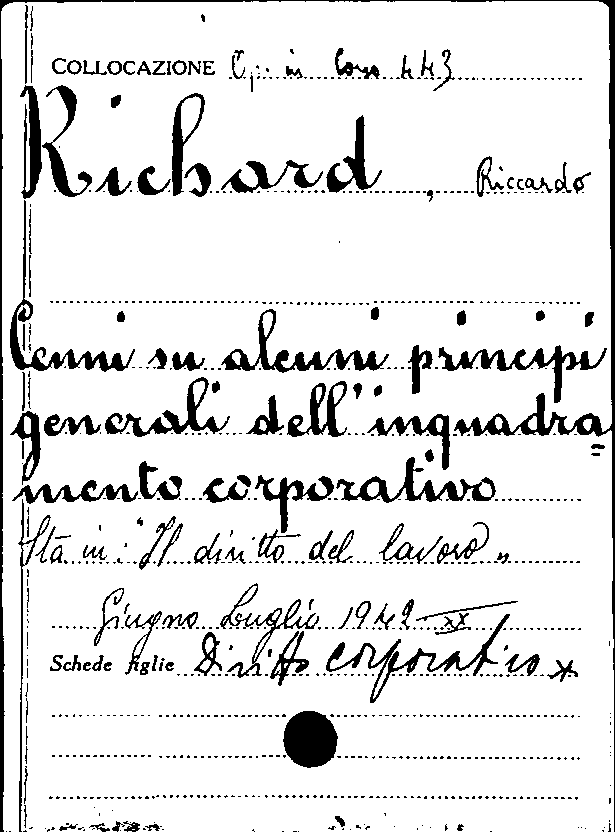 COLLOCAZIONE Op. in Corso 443
Richard, Riccardo
Cenni su alcuni principi
generali dell'inquadra=
mento corporativo
Sta in: "Il diritto del lavoro"
Giugno Luglio 1942-XX
Schede figlie Diritto corporativo x